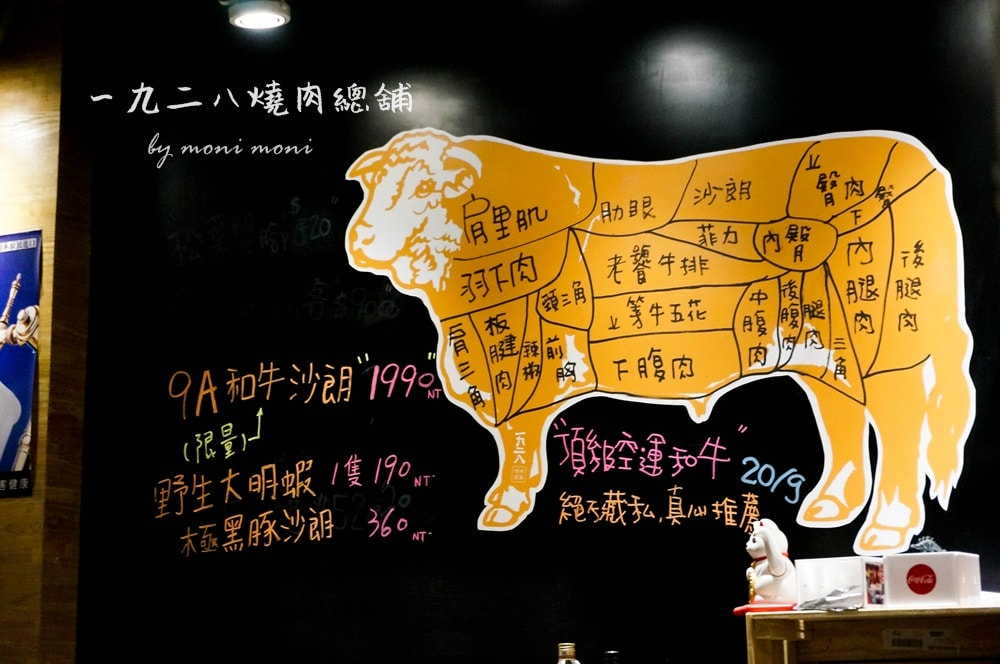 一九二八燒肉總舖
by moni moni
肩里肌
肋眼
沙朗
臀肉
羽下肉
老饕牛排
菲力
內臀
內腿肉
後腿肉
頸三角
牛五花
中腹肉
後腹肉
腿肉
三角
肩三角
板腱肉
辣椒
前胸
下腹肉
一九二八
9A和牛沙朗 "1990" NT
(限量)
野生大明蝦 1隻 190 NT.
極黑豚沙朗 360 NT.
"頂級空運和牛"
20/g
絕不藏私,真心推薦
Coca-Cola